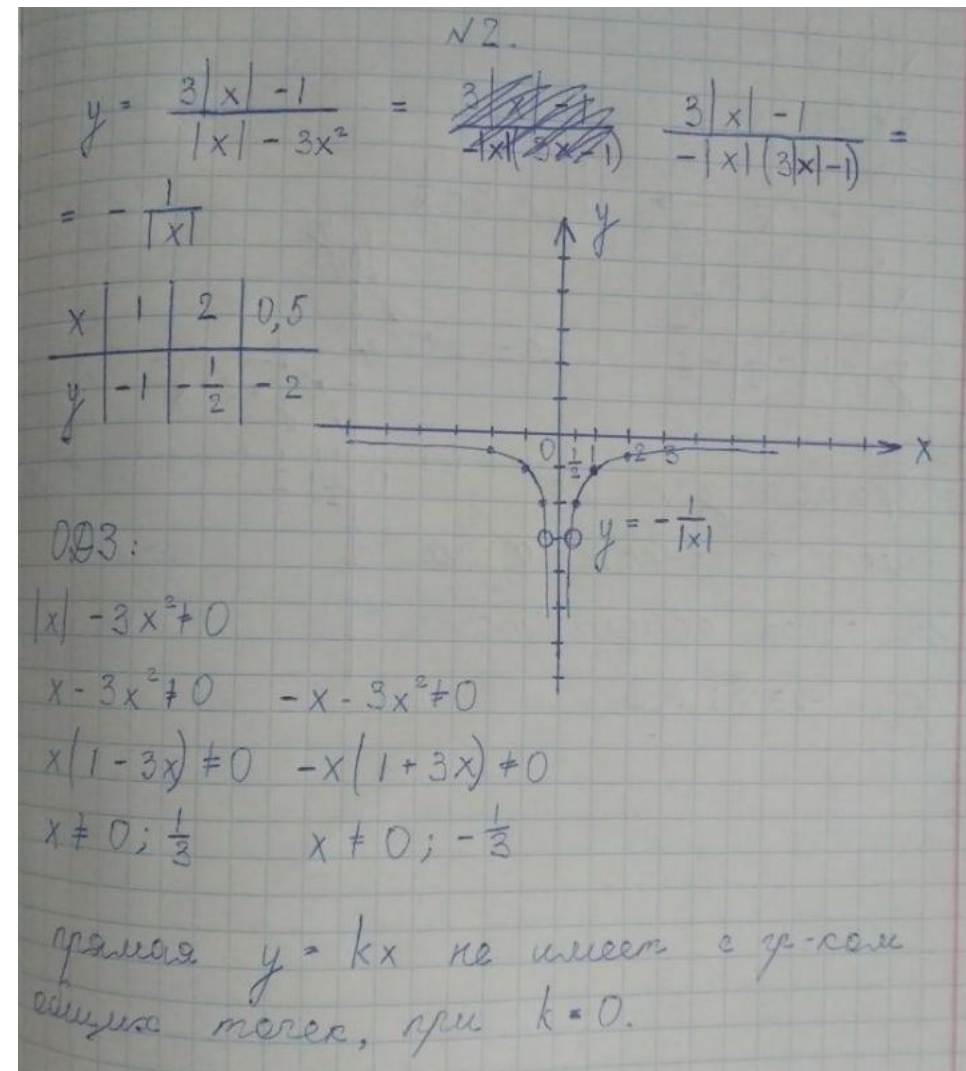 № 2.
y = \frac{3|x| - 1}{|x| - 3x²} = \frac{3|x| - 1}{-|x|(3|x| - 1)} =
= - \frac{1}{|x|}
y
x | 1 | 2 | 0,5
y | -1 | -\frac{1}{2} | -2
0 \frac{1}{2} 1 2 3 x
y = - \frac{1}{|x|}
ОДЗ:
|x| - 3x² ≠ 0
x - 3x² ≠ 0 -x - 3x² ≠ 0
x(1 - 3x) ≠ 0 -x(1 + 3x) ≠ 0
x ≠ 0; \frac{1}{3} x ≠ 0; -\frac{1}{3}
прямая y = kx не имеет с гр-ком
общих точек, при k = 0.